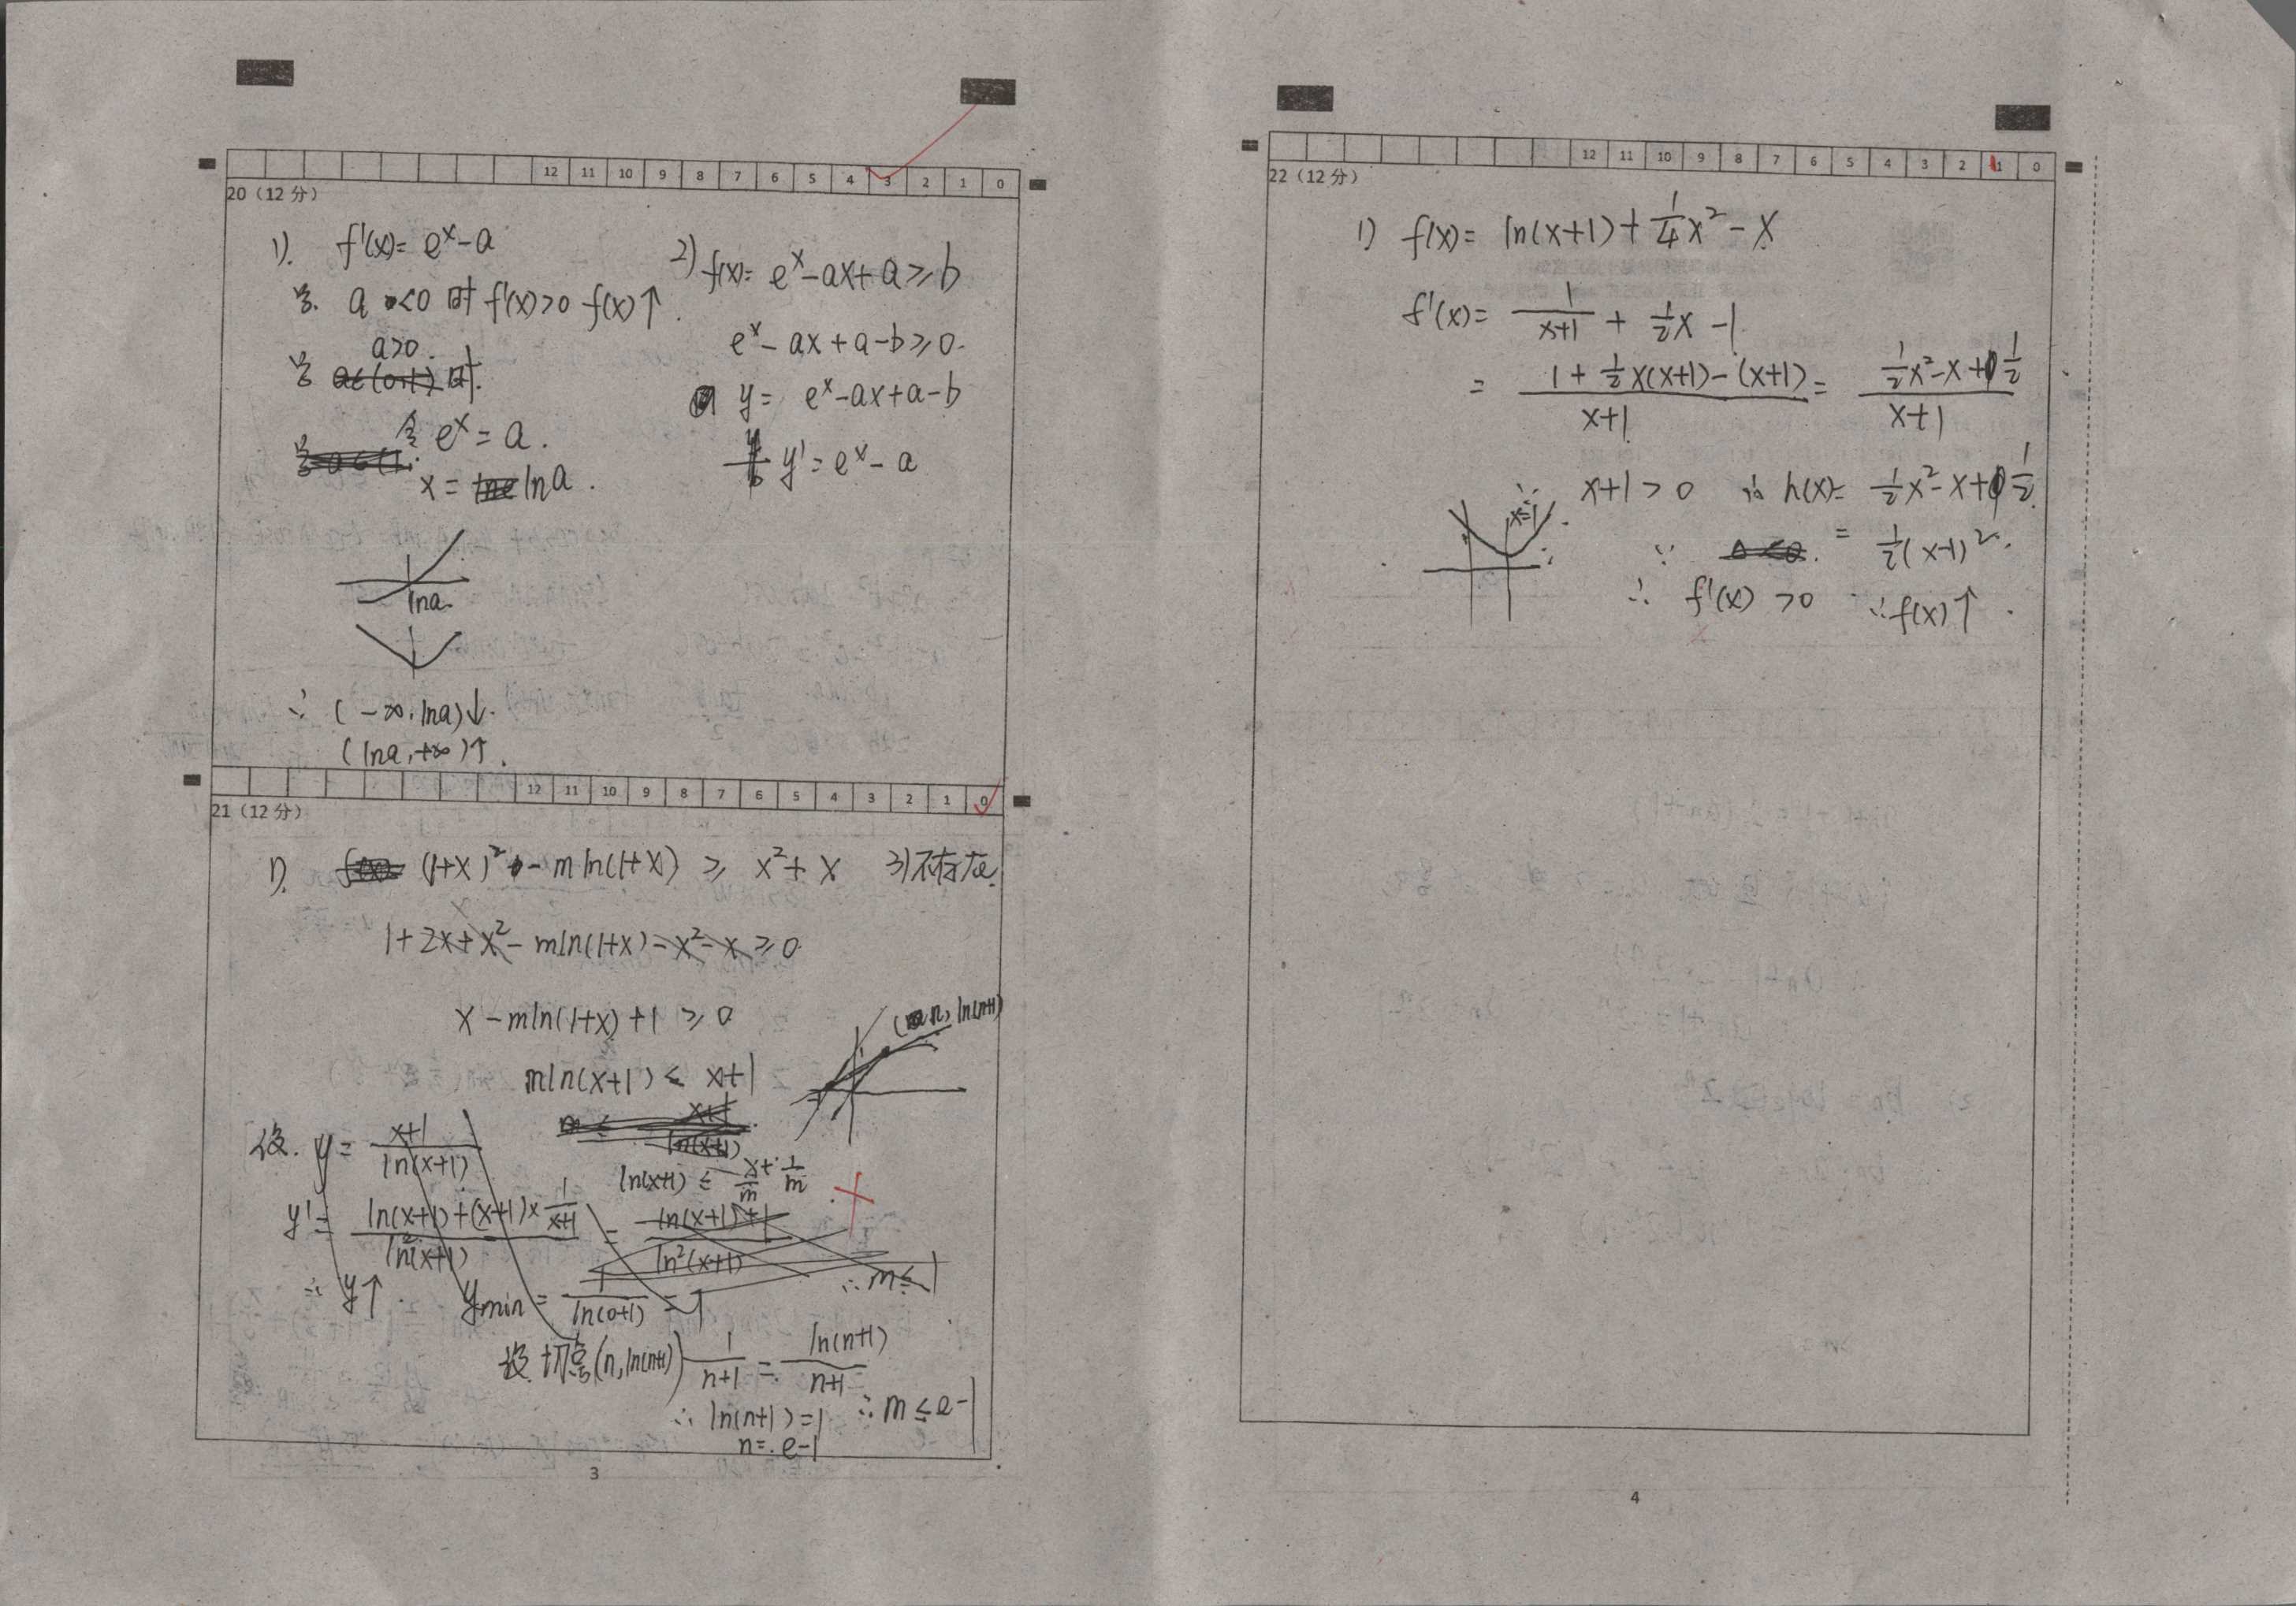 12 11 10 9 8 7 6 5 4 3 2 1 0
20（12 分）
1). f'(x)= eˣ-a
当. a <0 时 f'(x)>0 f(x)↑.
a>0.
当 时.
令 eˣ = a.
x = lna.
lna.
∴ (-∞, lna)↓.
(lna, +∞)↑.
2) f(x)= eˣ-ax+a ≥ b
eˣ- ax + a-b ≥ 0.
y = eˣ-ax+a-b
y' = eˣ- a
12 11 10 9 8 7 6 5 4 3 2 1 0
21（12 分）
1). (1+x)² - m ln(1+x) ≥ x²+ x 3) 不存在.
1+2x+x²- mln(1+x)-x²-x ≥ 0
x -mln(1+x) +1 ≥ 0
(n, ln(n+1)
mln(x+1) ≤ x+1
m ≤ x+1/ln(x+1)
设. y = x+1/ln(x+1)
ln(x+1) ≤ x/m + 1/m
y' = ln(x+1)+(x+1)×1/x+1 / ln²(x+1) = ln(x+1)+1 / ln²(x+1)
∴ y↑. ymin = 1/ln(0+1) = 1 ∴ m ≤ 1
设 切点(n, ln(n+1)) 1/n+1 = ln(n+1)/n+1
∴ ln(n+1)=1 ∴ m ≤ e-1
n = e-1
3
12 11 10 9 8 7 6 5 4 3 2 1 0
22（12 分）
1) f(x)= ln(x+1)+ 1/4x² - x
f'(x)= 1/x+1 + 1/2x -1
= 1+ 1/2x(x+1)-(x+1) / x+1 = 1/2x²-x+1/2 / x+1
∵ x+1 > 0 ∴ h(x)= 1/2x²-x+1/2
x=1
∵ Δ<0. = 1/2(x-1)².
∴ f'(x) >0 ∴ f(x)↑.
4